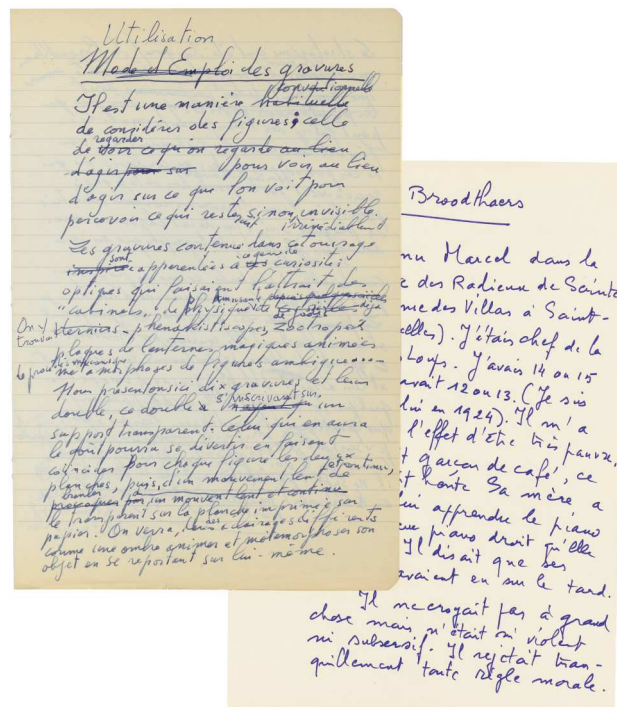 Utilisation
Mode d'Emploi des gravures
conventionnelle
Il est une manière habituelle
de considérer des figures; celle
regarder
de voir ce qu'on regarde au lieu
d'agir pour sur pour voir, au lieu
d'agir sur ce que l'on voit pour
percevoir ce qui reste, sinon, invisible.
irrémédiablement
Les gravures contenues dans cet ouvrage
sont
apparentées à ces curiosités
optiques qui faisaient l'attrait des
"cabinets" de physique amusante
On y
trouvait
phénakistiscopes, zootropes
plaques de lanternes magiques animées
métamorphoses de figures ambigues....
Nous présentons ici dix gravures et leur
double, ce double s'inscrivant sur un
support transparent. Celui qui en aura
le goût pourra se divertir en faisant
coïncider pour chaque figure les deux
planches, puis, d'un mouvement lent
et continu,
provoquer par un mouvement lent et continu
le transparent sur la planche imprimée sur
papier. On verra, des éclairages différents
comme une ombre animer et métamorphoser son
objet en se reportant sur lui-même.
Broodthaers
nu Marcel dans la
des Radieux de Sainte
me des Villas à Saint-
elles). J'étais chef de la
Loups. J'avais 14 ou 15
avait 12 ou 13. (Je suis
en 1924). Il m'a
l'effet d'être très pauvre,
garçon de café, ce
honte. Sa mère a
lui apprendre le piano
piano droit qu'elle
Il disait que ses
avaient eu sur le tard.
Il ne croyait pas à grand
chose mais n'était ni violent
ni subversif. Il rejetait tran-
quillement toute règle morale.